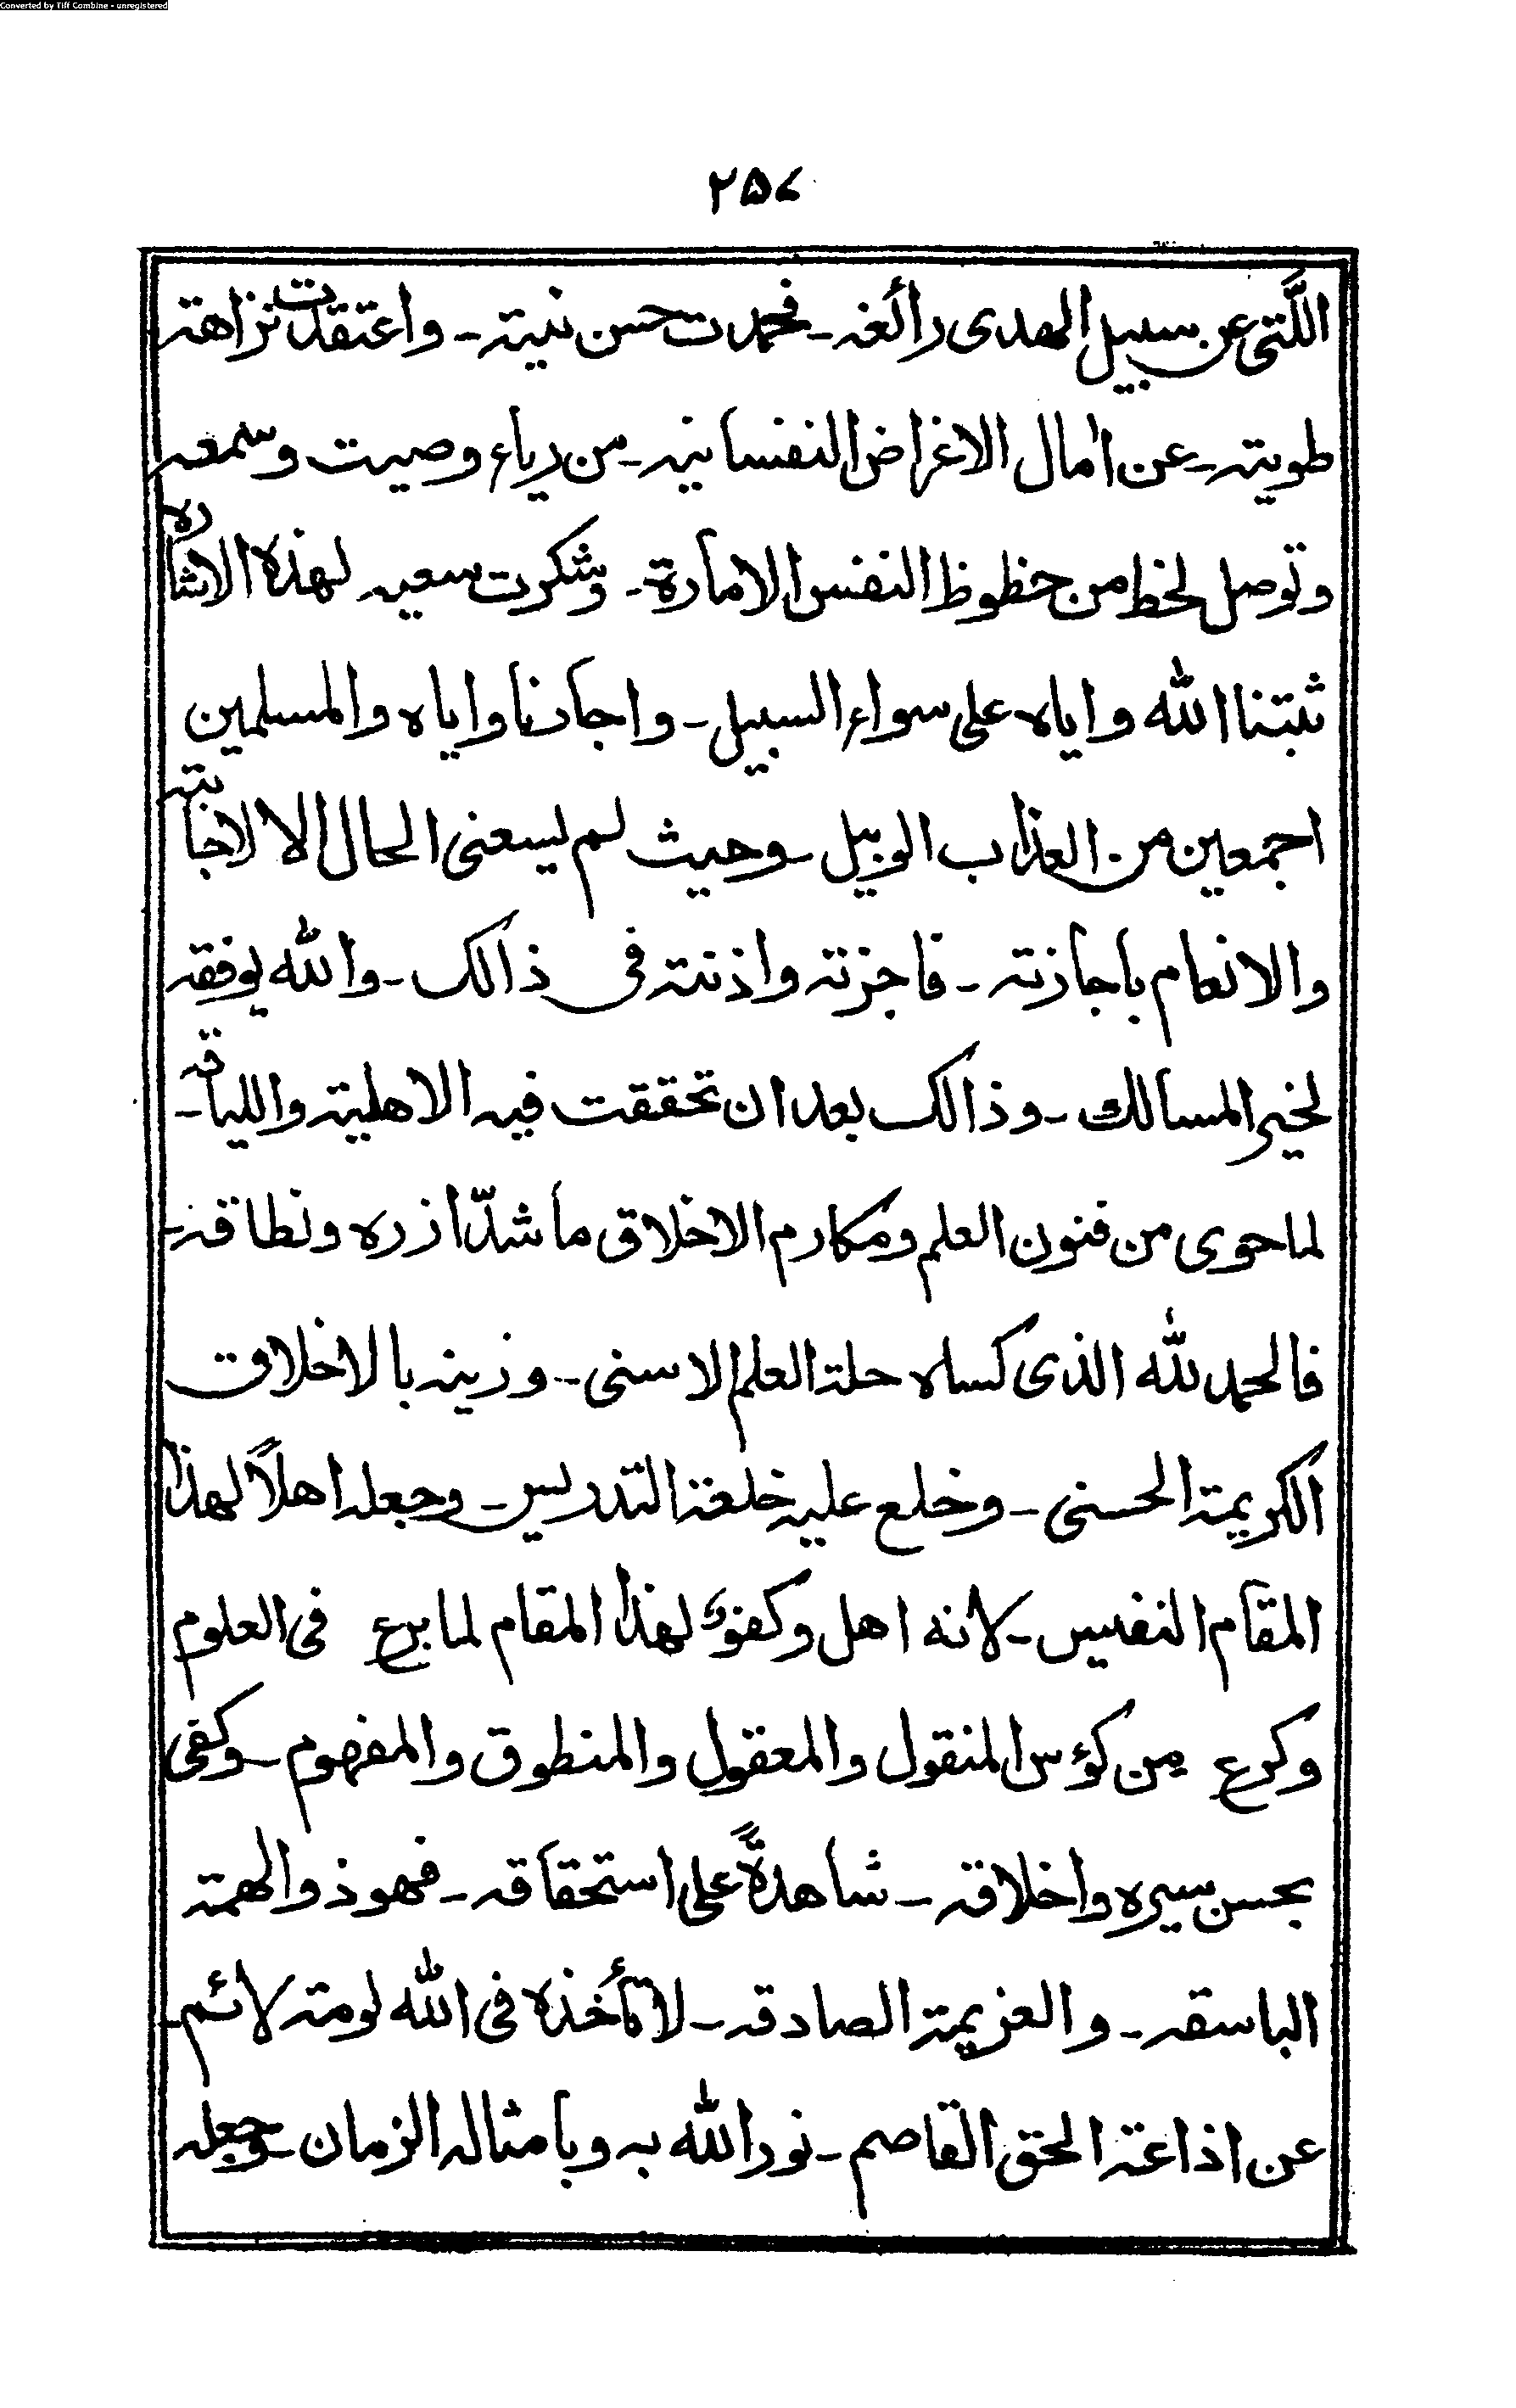 Converted by Tiff Combine - unregistered
۲۵۷
اللّتی عن سبیل الھدی رائغہ ۔ فحمدت حسن نیتہ ۔ واعتقدت نزاھتہ
طویتہ ۔ عن اٰمال الاغراض النفسانیہ ۔ من ریاء وصیت وسمعہ
وتوصل لخط من خظوظ النفس الامارۃ ۔ وشکرت سعیہ لھذہ الاشارہ
ثبتنا اللہ وایاہ علی سواء السبیل ۔ واجارنا وایاہ والمسلمین
اجمعین من العذاب الوبیل ۔ وحیث لم یسعنی الحال الا لاجابتہ
والانعام باجازتہ ۔ فاجزتہ واذنتہ فی ذالک ۔ واللہ یوفقہ
لخیر المسالک ۔ وذالک بعد ان تحققت فیہ الاھلیتہ واللیاقہ ۔
لما حوی من فنون العلم ومکارم الاخلاق ما شدّ ازرہ ونطاقہ ۔
فالحمد للہ الذی کساہ حلۃ العلم الاسنی ۔ وزینہ بالاخلاق
الکریمۃ الحسنی ۔ وخلع علیہ خلعۃ التدریس ۔ وجعلہ اھلاً لھذا
المقام النفیس ۔ لانہ اھل وکفوٌ لھذا المقام لما برع فی العلوم
وکرع مِن کؤس المنقول والمعقول والمنطوق والمفھوم ۔ وکفی
بحسن سیرہ واخلاقہ ۔ شاھدۃً علی استحقاقہ ۔ فھو ذوالھمتہ
الباسقہ ۔ والعزیمۃ الصادقہ ۔ لا تأخذہ فی اللہ لومتہ لائم ۔
عن اذاعتہ الحق القاصم ۔ نور اللہ بہ وبامثالہ الزمان ۔ وجعلہ